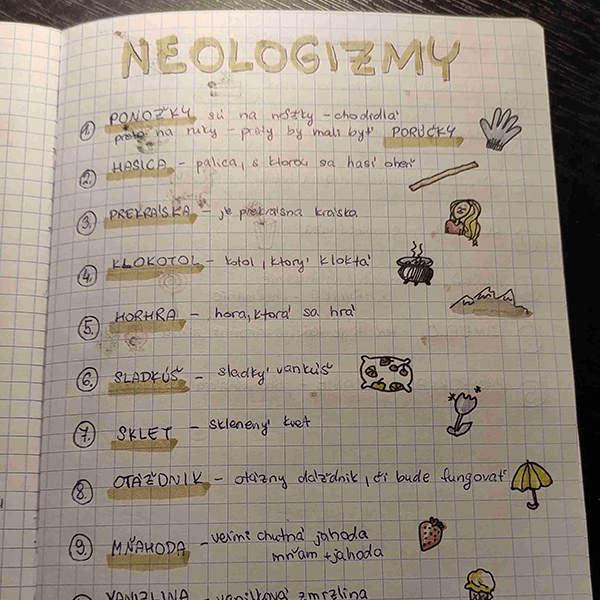 NEOLOGIZMY
1. PONOŽKY sú na nôžky - chodidlá
preto na ruky - prsty by mali byť PORÚČKY
2. HASICA - palica, s ktorou sa hasí oheň
3. PREKRÁSKA - je prekrásna kráska
4. KLOKOTOL - kotol, ktorý kloktá
5. HORHRA - hora, ktorá sa hrá
6. SLADKÚŠ - sladký vankúš
7. SKLET - sklenený kvet
8. OTÁŽDNIK - otázny dáždnik, či bude fungovať
9. MŇAHODA - veľmi chutná jahoda
mňam + jahoda
VANIZLINA - vanilková zmrzlina